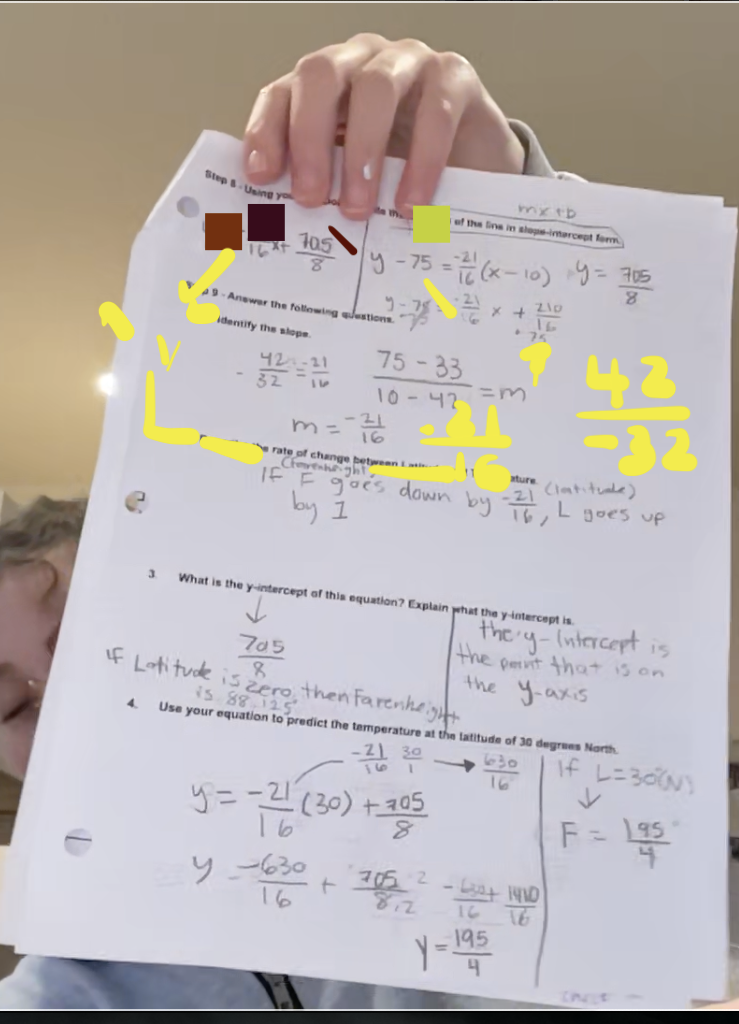 mx+b
Step 8 - Using of the line in slope-intercept form.
16 x+ 705/8
y - 75 = -21/16 (x - 10) y = 705/8
9 - Answer the following questions.
y - 75 = -21/16 x + 210/16
- 75 + 75
identify the slope.
- 42/32 = -21/16 75 - 33 / 10 - 42 = m 42/-32
m = -21/16 -21/16
the rate of change between
(farenheight) (latitude)
If F goes down by -21/16, L goes up
by 1
3. What is the y-intercept of this equation? Explain what the y-intercept is.
↓
705/8
If Latitude is zero, then Farenheight
is 88.125°
the y-intercept is
the point that is on
the y-axis
4. Use your equation to predict the temperature at the latitude of 30 degrees North.
-21/16 30/1 → 630/16
y = -21/16 (30) + 705/8
y = -630/16 + 705·2/8·2 -630/16 + 1410/16
y = 195/4
If L=30°(N)
↓
F = 195°/4